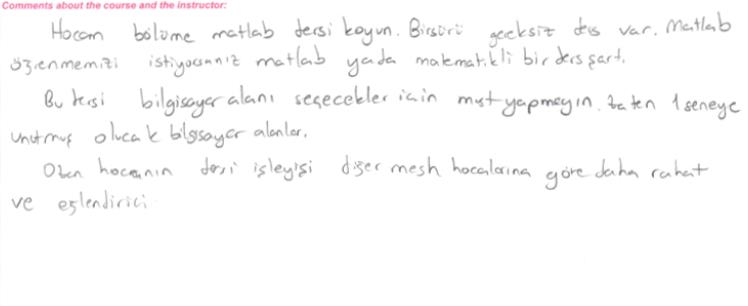 Comments about the course and the instructor:
Hocam bölüme matlab dersi koyun. Birsürü gereksiz ders var. Matlab
öğrenmemizi istiyorsanız matlab yada matematikli bir ders şart.
Bu dersi bilgisayar alanı seçecekler için must yapmayın. Zaten 1 seneye
unutmuş olucak bilgisayar alanlar.
Ozan hocanın dersi işleyişi diğer mesh hocalarına göre daha rahat
ve eğlendirici.